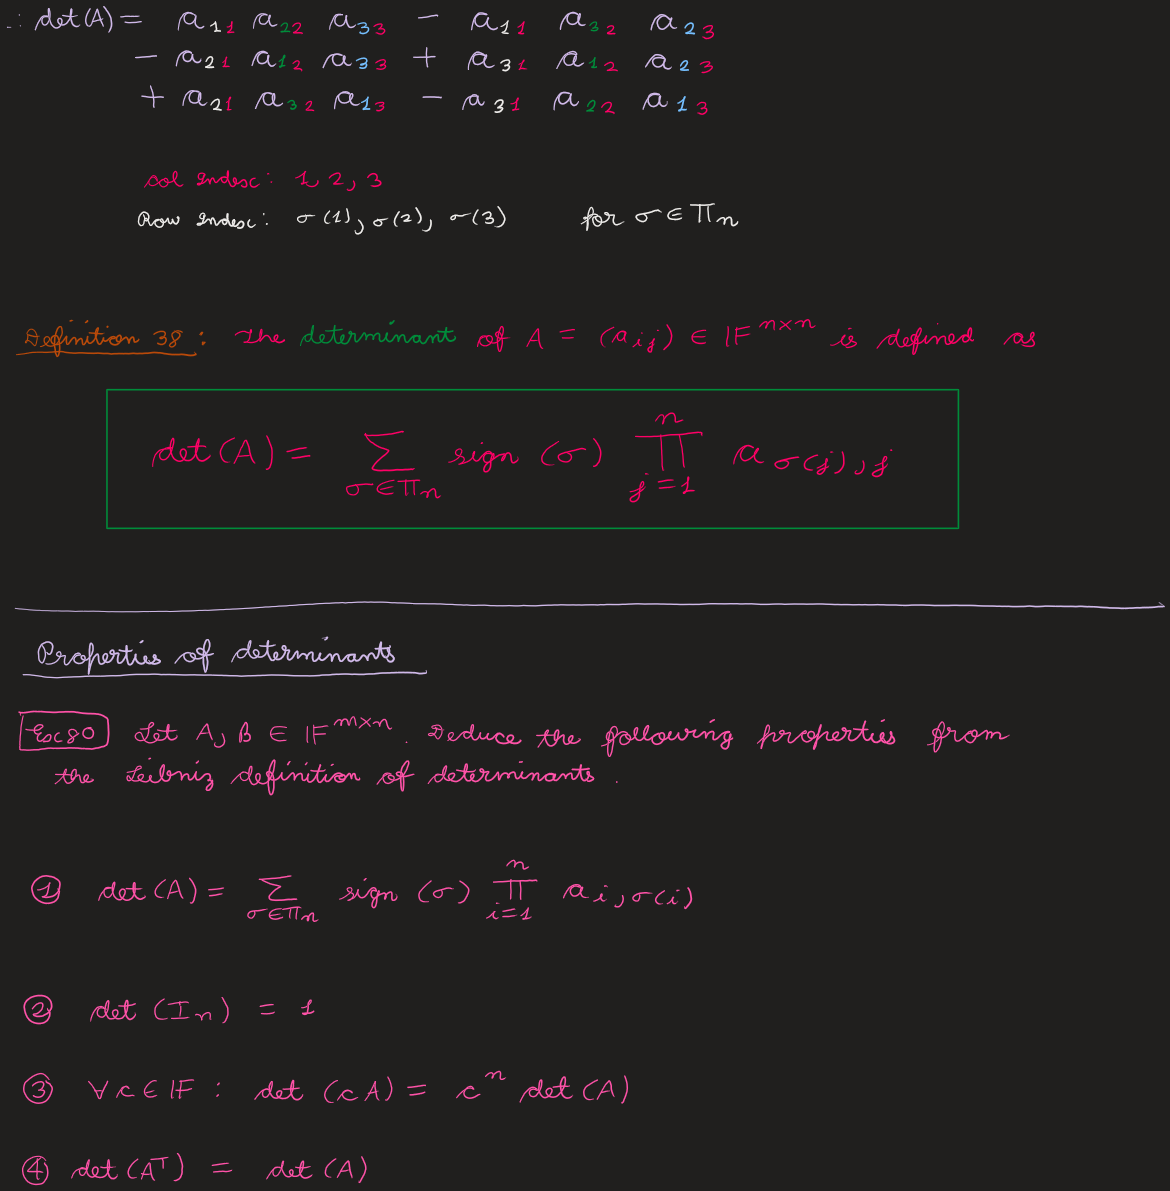 ∴ det(A) = a₁₁ a₂₂ a₃₃ − a₁₁ a₃₂ a₂₃
− a₂₁ a₁₂ a₃₃ + a₃₁ a₁₂ a₂₃
+ a₂₁ a₃₂ a₁₃ − a₃₁ a₂₂ a₁₃
col index: 1, 2, 3
Row index: σ(1), σ(2), σ(3) for σ ∈ Πₙ
Definition 38: The determinant of A = (aᵢⱼ) ∈ 𝔽^{n×n} is defined as
det(A) = ∑_{σ∈Πₙ} sign(σ) ∏_{j=1}^{n} a_{σ(j),j}
Properties of determinants
Exc80 Let A, B ∈ 𝔽^{m×n}. Deduce the following properties from
the Leibniz definition of determinants.
① det(A) = ∑_{σ∈Πₙ} sign(σ) ∏_{i=1}^{n} a_{i,σ(i)}
② det(Iₙ) = 1
③ ∀c∈𝔽 : det(cA) = cⁿ det(A)
④ det(Aᵀ) = det(A)